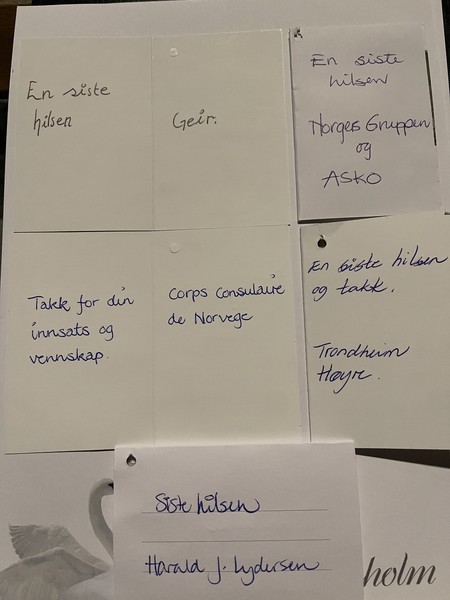 En siste
hilsen
Geir.
En siste
hilsen
Norges Gruppen
og
ASKO
Takk for din
innsats og
vennskap.
Corps Consulaire
de Norvege
En siste hilsen
og takk.
Trondheim
Høyre.
Siste hilsen
Harald J. Lydersen
holm